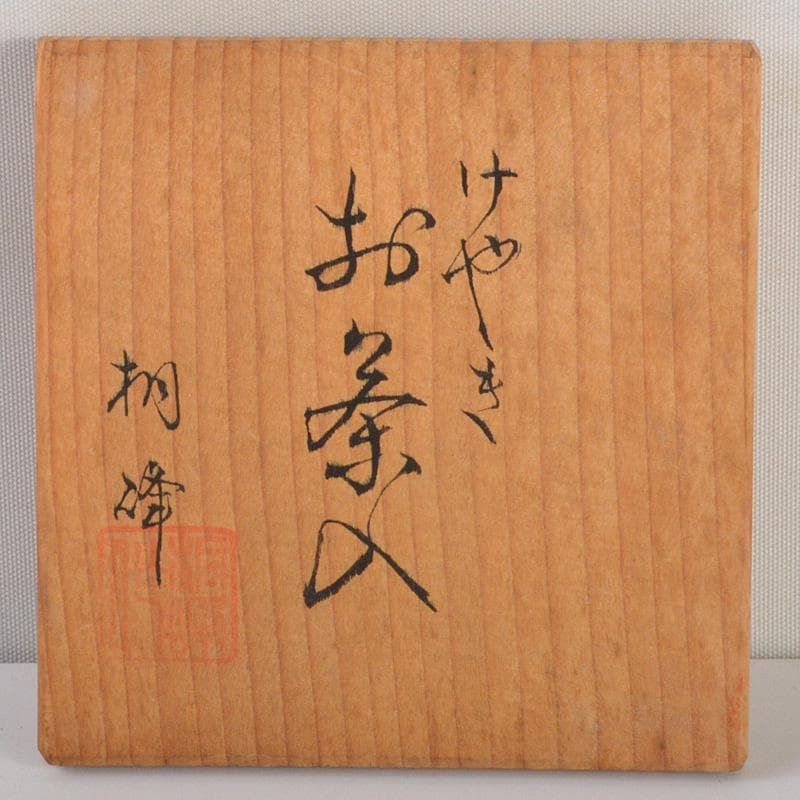 けやき
お茶入
桐峰